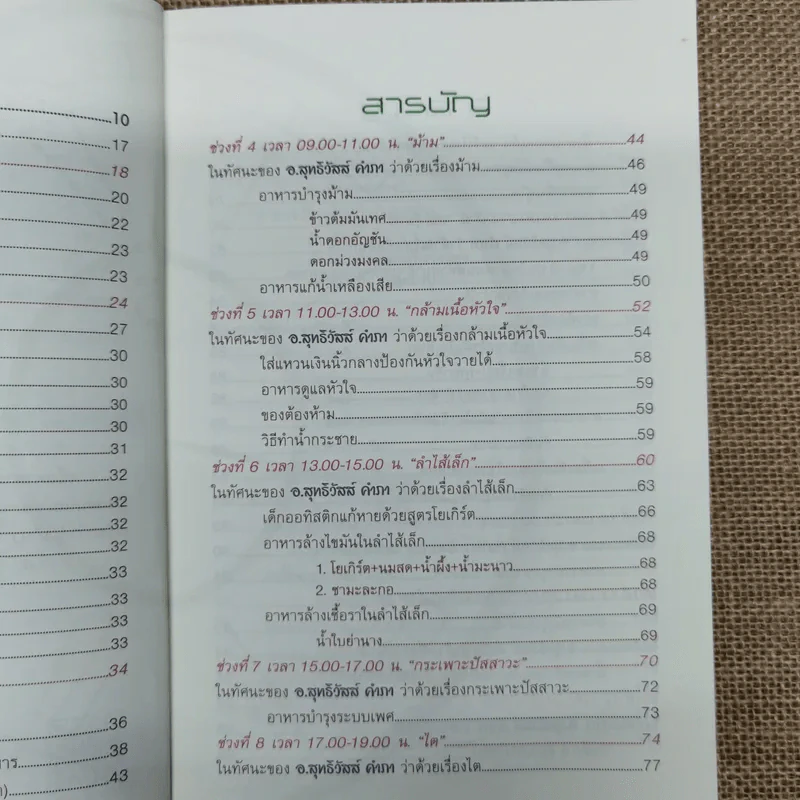 10
17
18
20
22
23
23
24
27
30
30
30
30
31
32
32
32
32
33
33
33
33
34
36
38
43
สารบัญ
ช่วงที่ 4 เวลา 09.00-11.00 น. "ม้าม" 44
ในทัศนะของ อ.สุทธิวัสส์ คำภา ว่าด้วยเรื่องม้าม 46
อาหารบำรุงม้าม 49
ข้าวต้มมันเทศ 49
น้ำดอกอัญชัน 49
ดอกม่วงมงคล 49
อาหารแก้น้ำเหลืองเสีย 50
ช่วงที่ 5 เวลา 11.00-13.00 น. "กล้ามเนื้อหัวใจ" 52
ในทัศนะของ อ.สุทธิวัสส์ คำภา ว่าด้วยเรื่องกล้ามเนื้อหัวใจ 54
ใส่แหวนเงินนิ้วกลางป้องกันหัวใจวายได้ 58
อาหารดูแลหัวใจ 59
ของต้องห้าม 59
วิธีทำน้ำกระชาย 59
ช่วงที่ 6 เวลา 13.00-15.00 น. "ลำไส้เล็ก" 60
ในทัศนะของ อ.สุทธิวัสส์ คำภา ว่าด้วยเรื่องลำไส้เล็ก 63
เด็กออทิสติกแก้หายด้วยสูตรโยเกิร์ต 66
อาหารล้างไขมันในลำไส้เล็ก 68
1. โยเกิร์ต+นมสด+น้ำผึ้ง+น้ำมะนาว 68
2. ชามะละกอ 68
อาหารล้างเชื้อราในลำไส้เล็ก 69
น้ำใบย่านาง 69
ช่วงที่ 7 เวลา 15.00-17.00 น. "กระเพาะปัสสาวะ" 70
ในทัศนะของ อ.สุทธิวัสส์ คำภา ว่าด้วยเรื่องกระเพาะปัสสาวะ 72
อาหารบำรุงระบบเพศ 73
ช่วงที่ 8 เวลา 17.00-19.00 น. "ไต" 74
ในทัศนะของ อ.สุทธิวัสส์ คำภา ว่าด้วยเรื่องไต 77